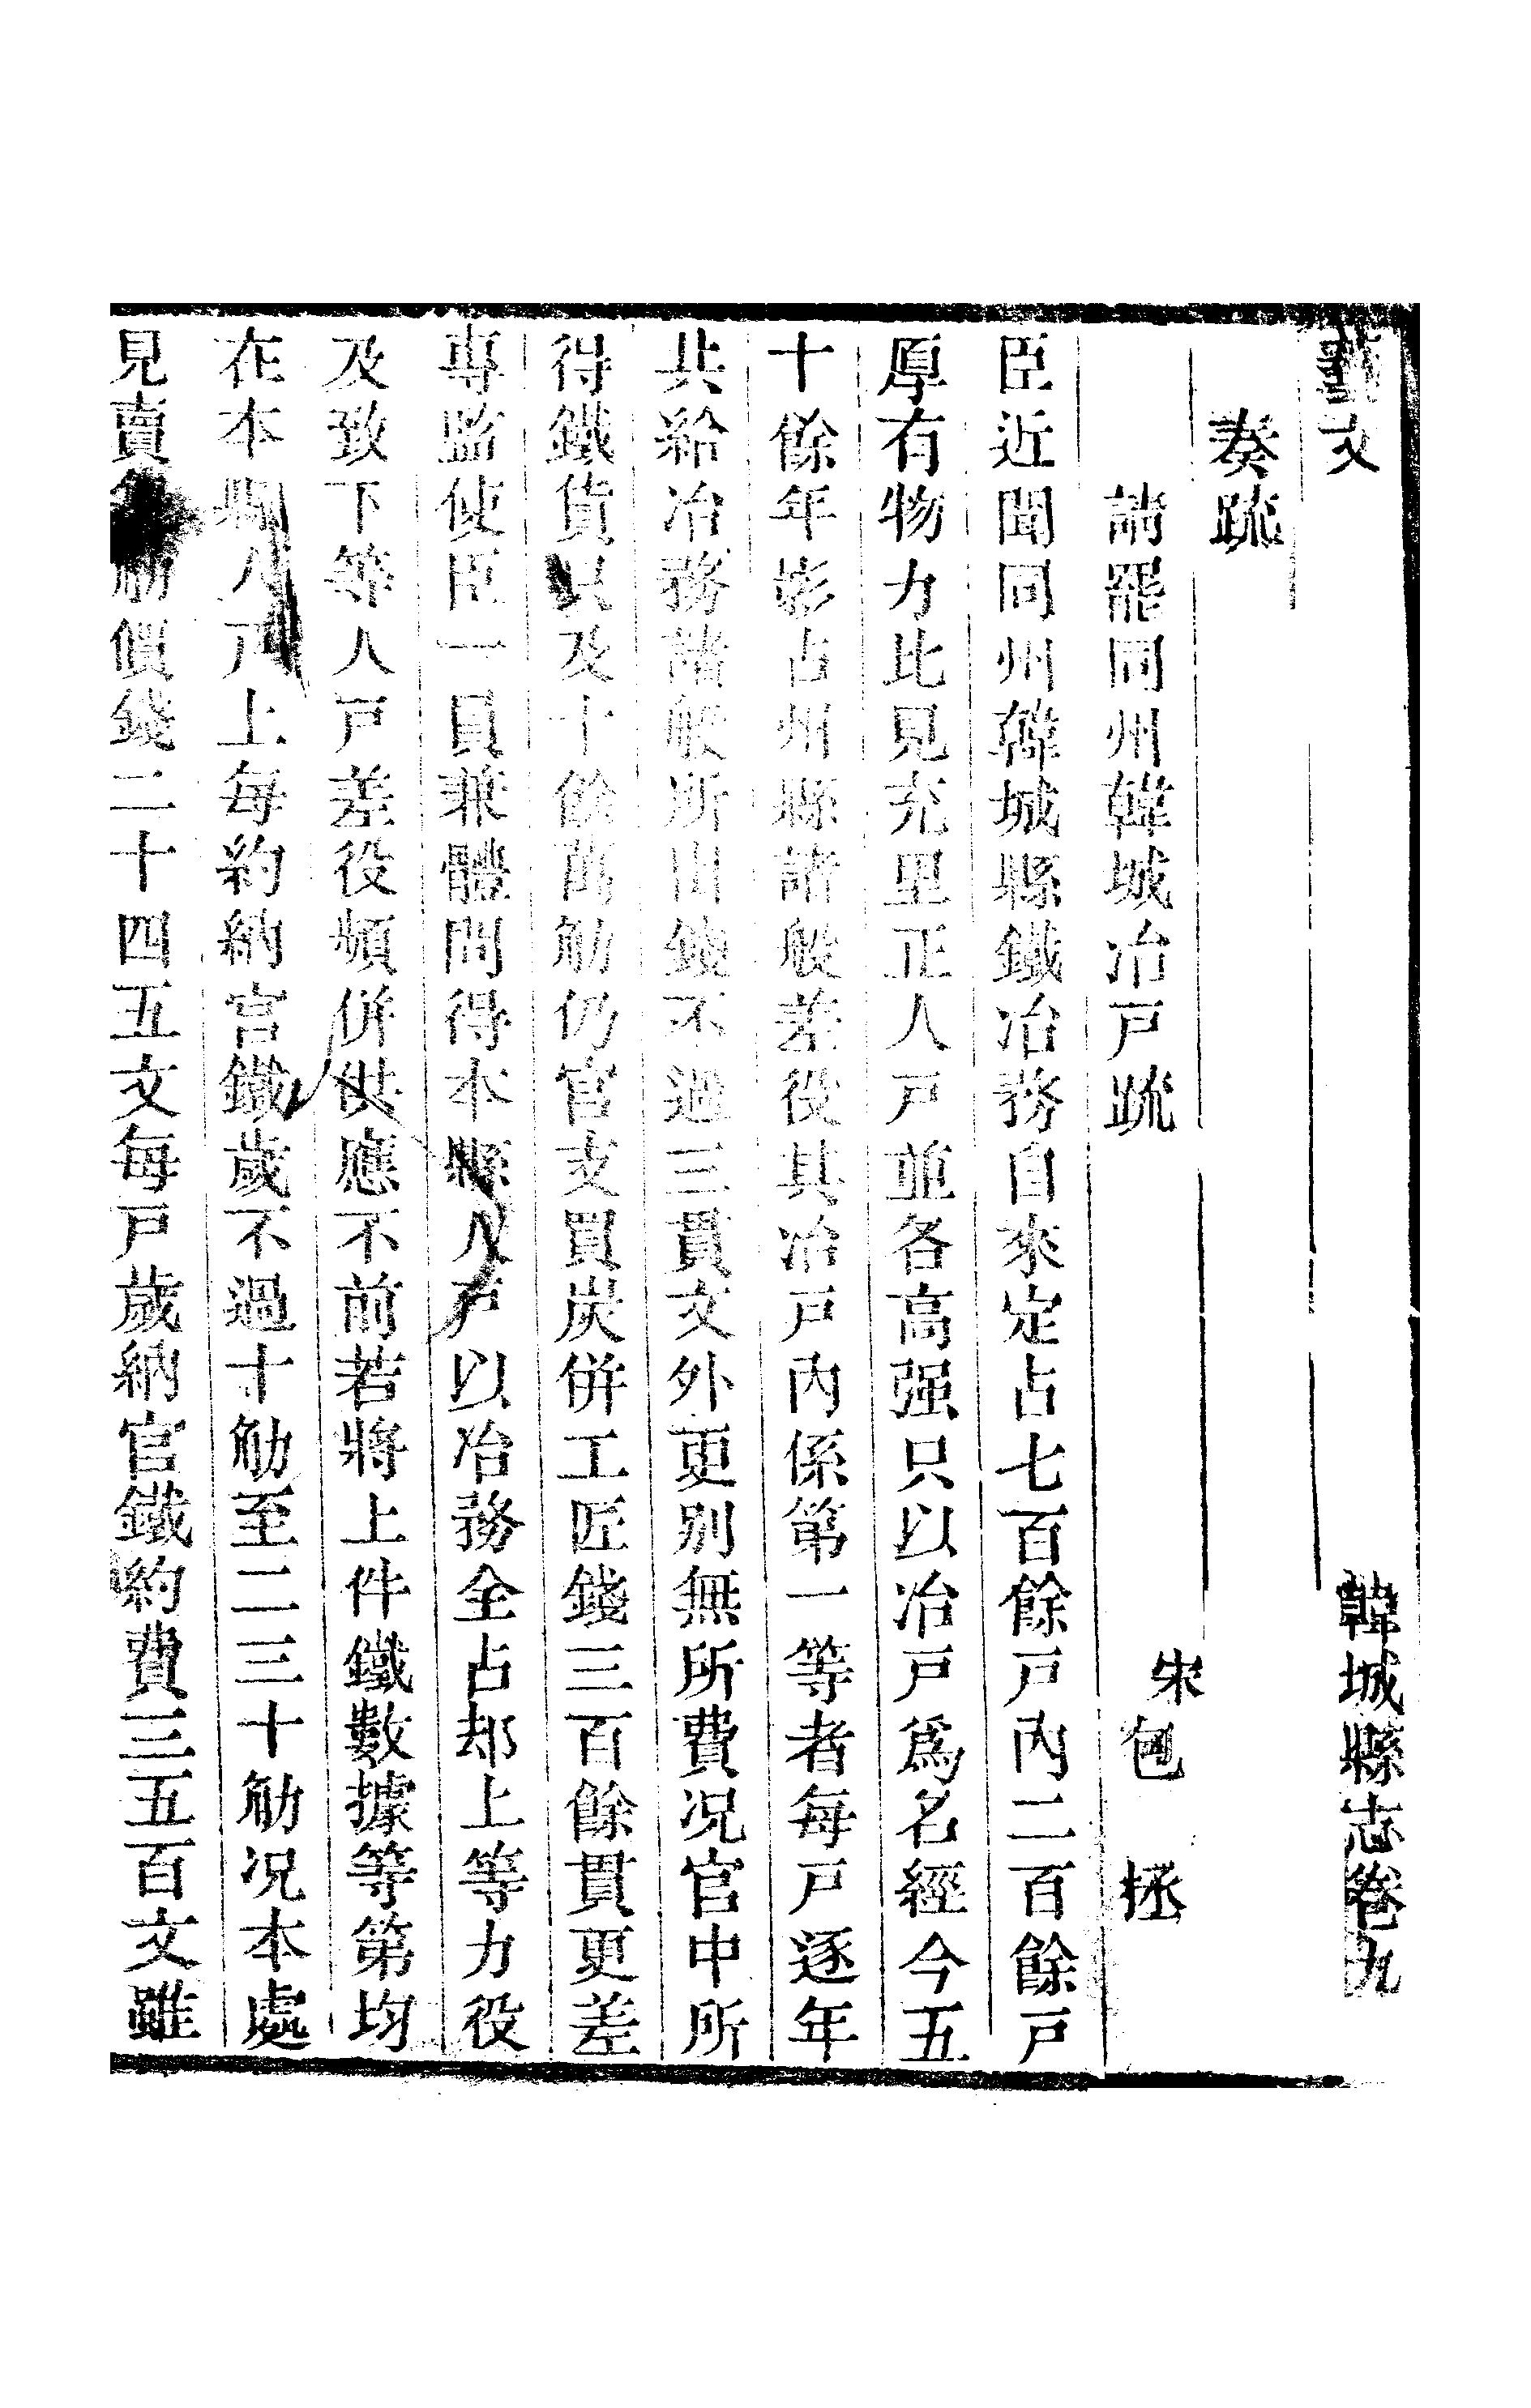 藝文 韓城縣志卷九
奏疏
請罷同州韓城冶戸疏 宋包 拯
臣近聞同州韓城縣鐵冶務自來定占七百餘戸內二百餘戸
厚有物力比見充里正人戸並各高强只以冶戸爲名經今五
十餘年影占州縣諸般差役其冶戸內係第一等者每戸逐年
共給冶務諸般所出錢不過三貫文外更别無所費况官中所
得鐵貨只及十餘萬觔仍官支買炭併工匠錢三百餘貫更差
專監使臣一員兼體問得本縣人戸以冶務全占却上等力役
及致下等人戸差役頻併供應不前若將上件鐵數據等第均
在本縣人戸上每約納官鐵歲不過十觔至二三十觔况本處
見賣觔價錢二十四五文每戸歲納官鐵約費三五百文雖